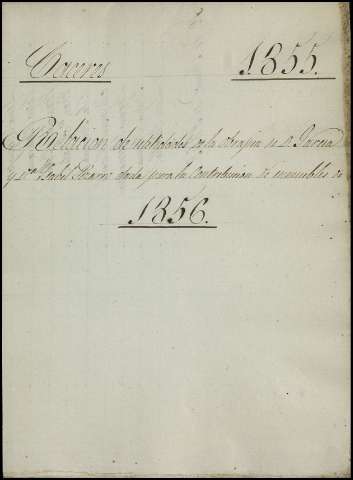 Caceres 1855.
Relacion de utilidades de la Obrapia de Dn Garcia
y Da Ysabel Pizarro dada para la Contribucion de inmuebles de
1856.